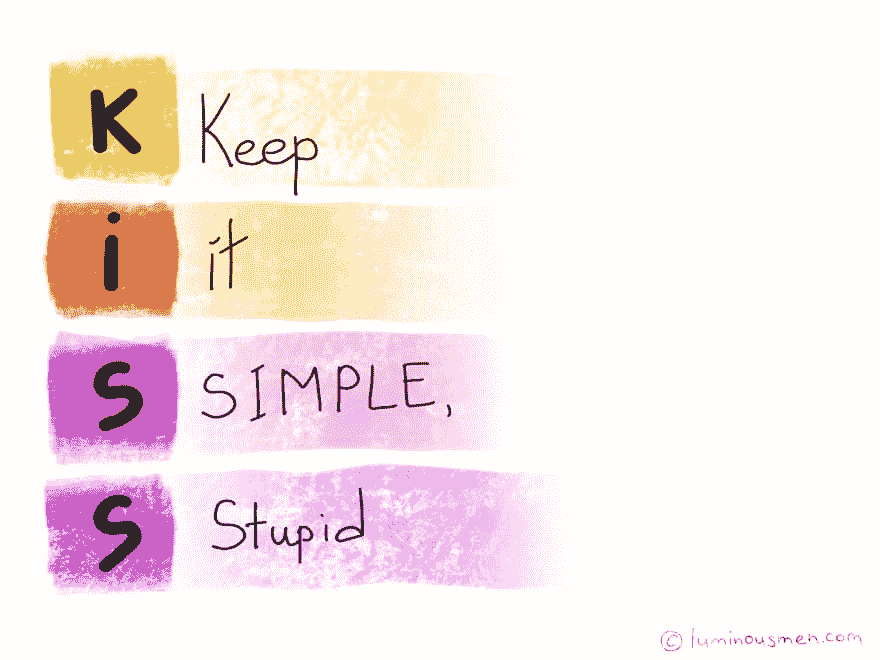 K Keep
i it
S SIMPLE,
S Stupid
© luminousmen.com